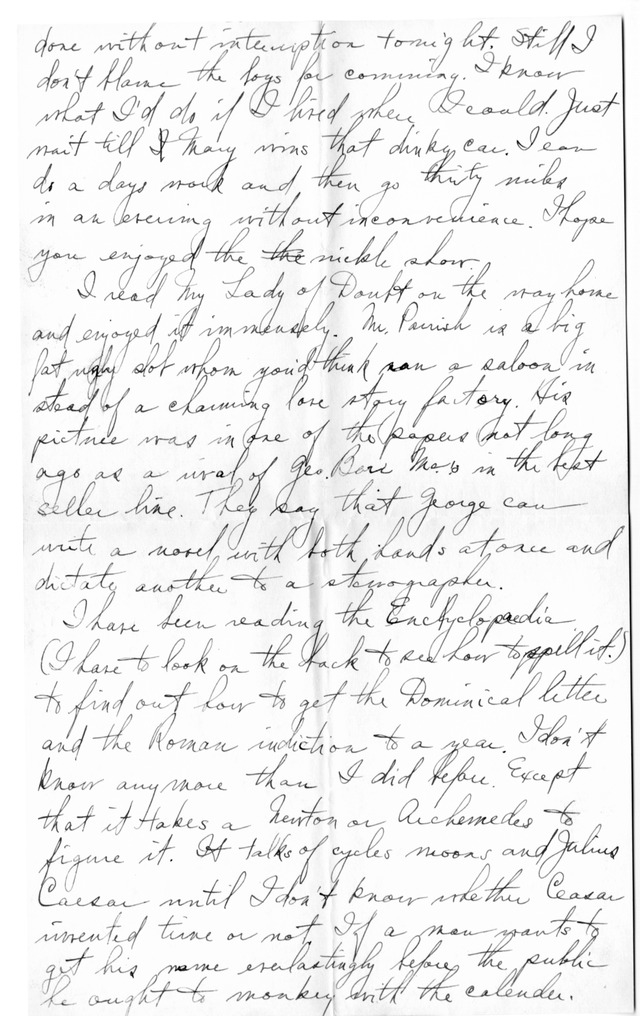 done without interruption tonight. Still I
don't blame the boys for comming. I know
what I'd do if I lived where I could. Just
wait till Mary wins that dinky car. I can
do a days work and then go thirty miles
in an evening without inconvenience. I hope
you enjoyed the the nickle show.
I read My Lady of Doubt on the way home
and enjoyed it immensely. Mr. Parrish is a big
fat ugly slob whom you'd think ran a saloon in
stead of a charming love story factory. His
picture was in one of the papers not long
ago as a rival of Geo. Barr in the best
seller line. They say that George can
write a novel with both hands at once and
dictate another to a stenographer.
I have been reading the Encyclopaedia
(I have to look on the back to see how to spell it.)
to find out how to get the Dominical letter
and the Roman indiction to a year. I don't
know anymore than I did before. Except
that it takes a Newton or Archemedes to
figure it. It talks of cycles moons and Julius
Caesar until I don't know whether Ceasar
invented time or not. If a man wants to
get his name everlastingly before the public
he ought to monkey with the calender.